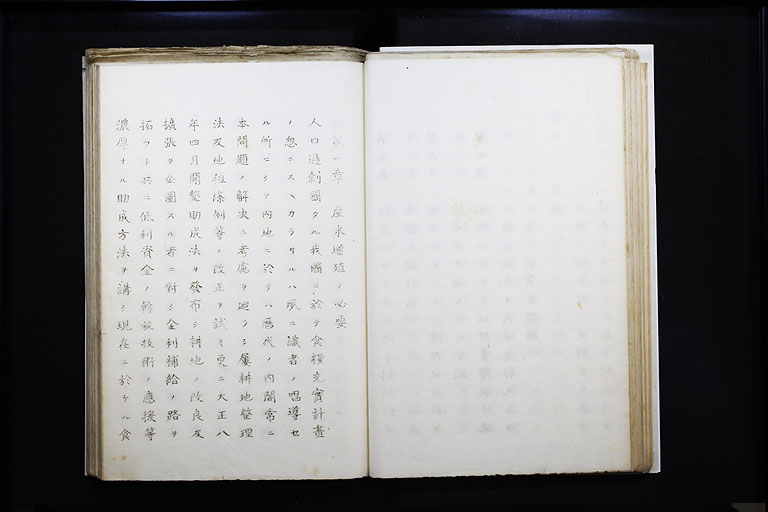 第一章 産米増殖ノ必要
人口過剰國タル我國ニ於テ食糧充實計畫
ノ忽ニスヘカラサルハ夙ニ識者ノ唱導セ
ル所ニシテ内地ニ於テハ歴代ノ内閣常ニ
本問題ノ解決ニ考慮ヲ廻ラシ屢耕地整理
法及地租條例等ノ改正ヲ試ミ更ニ大正八
年四月開墾助成法ヲ發布シ耕地ノ改良及
擴張ヲ企圖スル者ニ對シ金利補給ノ路ヲ
拓ク ト共ニ低利資金ノ斡旋技術ノ應援等
濃厚ナル助成方法ヲ講シ現在ニ於ケル食